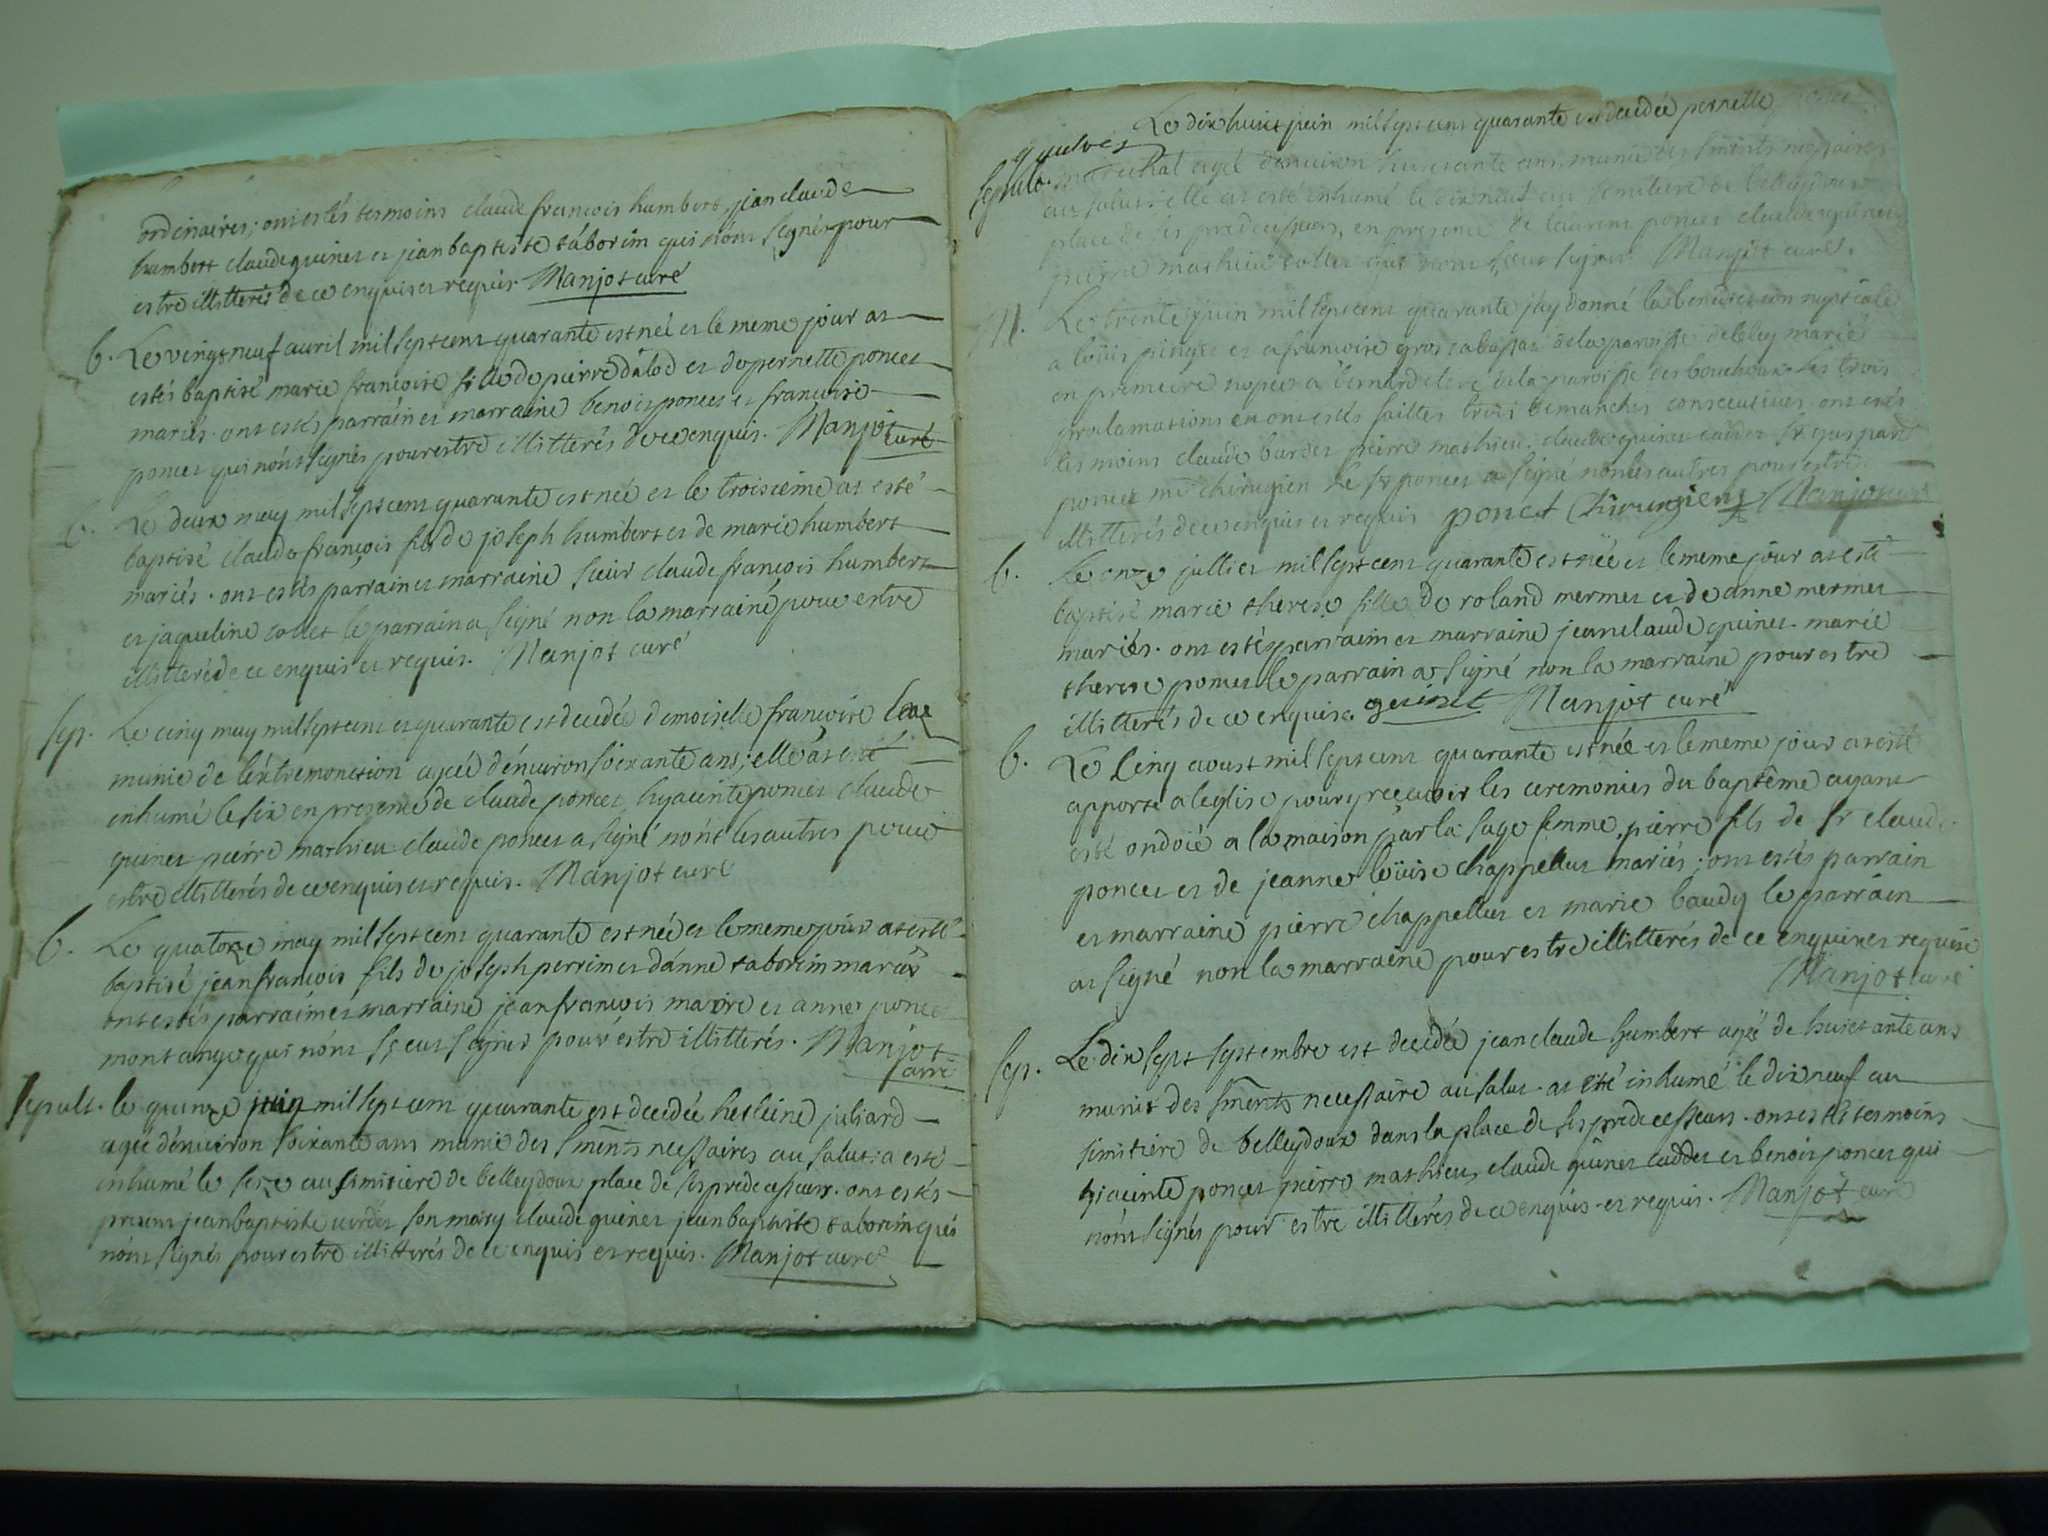 ordinaires; ont estés tesmoins claude françois humbert, jean claude
humbert claude guinet et jean baptiste taborin qui n'ont signés pour
estre illitterés de ce enquis et requis Manjot curé
b. Le vingt neuf avril mil sept cent quarante est née et le meme jour at
estés baptisé marie francoise fille de pierre dalod et de pernette poncet
mariés. ont estés parrain et marraine benoit poncet et francoise
poncet qui n'ont signés pour estre illitterés de ce enquis. Manjot curé
b. Le deux may mil sept cent quarante est née et le troisieme at esté
baptisé claude françois fils de joseph humbert et de marie humbert
mariés. ont estés parrain et marraine sieur claude françois humbert
et jaqueline collet le parrain a signé non la marraine pour estre
illitteré de ce enquis et requis. Manjot curé
sep. Le cinq may mil sept cent et quarante est decedée demoiselle françoise
munie de l'extremonction agée d'environ soixante ans; elle at esté
inhumé le six en presence de claude poncet hyacinte poncet claude
guinet pierre mathieu claude poncet a signé non les autres pour
estre illitterés de ce enquis et requis. Manjot curé
b. Le quatorze may mil sept cent quarante est née et le meme jour at esté
baptisé jean françois fils de joseph perrin et d'anne taborin mariés
ont estés parrain et marraine jean françois maire et anne poncet
montange qui n'ont sçeut signer pour estre illitterés. Manjot
curé
sepult. le quinze juin mil sept cent quarante est decedée heleine juliard
agée d'environ soixante ans munie des sments necessaires au salut: a esté
inhumé le seze au simitiere de belleydoux place de ses predecesseurs. ont estés
presens jean baptiste son mary claude guinet jean baptiste taborin qui
n'ont signés pour estre illitterés de ce enquis et requis. Manjot curé
Le dix huict juin mil sept cent quarante est decedée pernette
sepult. marechal agée d'environ huictante ans munie des sments necessaires
au salut: elle at esté inhumé le dix neuf au simitiere de belleydoux
place de ses predecesseurs, en presence de laurent poncet claude guinet
pierre mathieu collet qui n'ont sçeut signer. Manjot curé.
M. Le trente juin mil sept cent quarante j'ay donné la benediction nuptiale
a loüis et a francoise de la paroisse
en premiere nopces a bernard de la paroisse des bouchoux. les trois
proclamations en ont estés faittes trois dimanches consecutives. ont estés
tesmoins claude burdet pierre mathieu. claude guinet cadet sr gaspard
poncet me chirugien le sr poncet a signé non les autres pour estre
illitterés de ce enquis et requis poncet Chirurgiens Manjot curé
b. Le onze jullier mil sept cent quarante est née et le meme jour at esté
baptisé marie therese fille de roland mermet et de anne mermet
mariés. ont estés parrain et marraine jean claude guinet. marie
therese poncet le parrain a signé non la marraine pour estre
illitterés de ce enquise. guinet Manjot curé
b. Le cinq aoust mil sept cent quarante est née et le meme jour at esté
apporté a l'eglise pour y reçevoir les ceremonies du baptême ayant
esté ondoié a la maison par la sage femme, pierre fils de sr claude
poncet et de jeanne loüise chappellus mariés; ont estés parrain
et marraine pierre chappellus et marie baudy le parrain
at signé non la marraine pour estre illitterés de ce enquise et requise
Manjot curé
sep. Le dix sept septembre est decedé jean claude humbert agë de huictante ans
munit des sments necessaire au salut. at esté inhumé le dix neuf au
simitiere de belleydoux dans la place de ses predecesseurs. ont estés tesmoins
hiacinte poncet pierre mathieu, claude guinet cadet et benoit poncet qui
n'ont signés pour estre illitterés de ce enquis et requis. Manjot curé